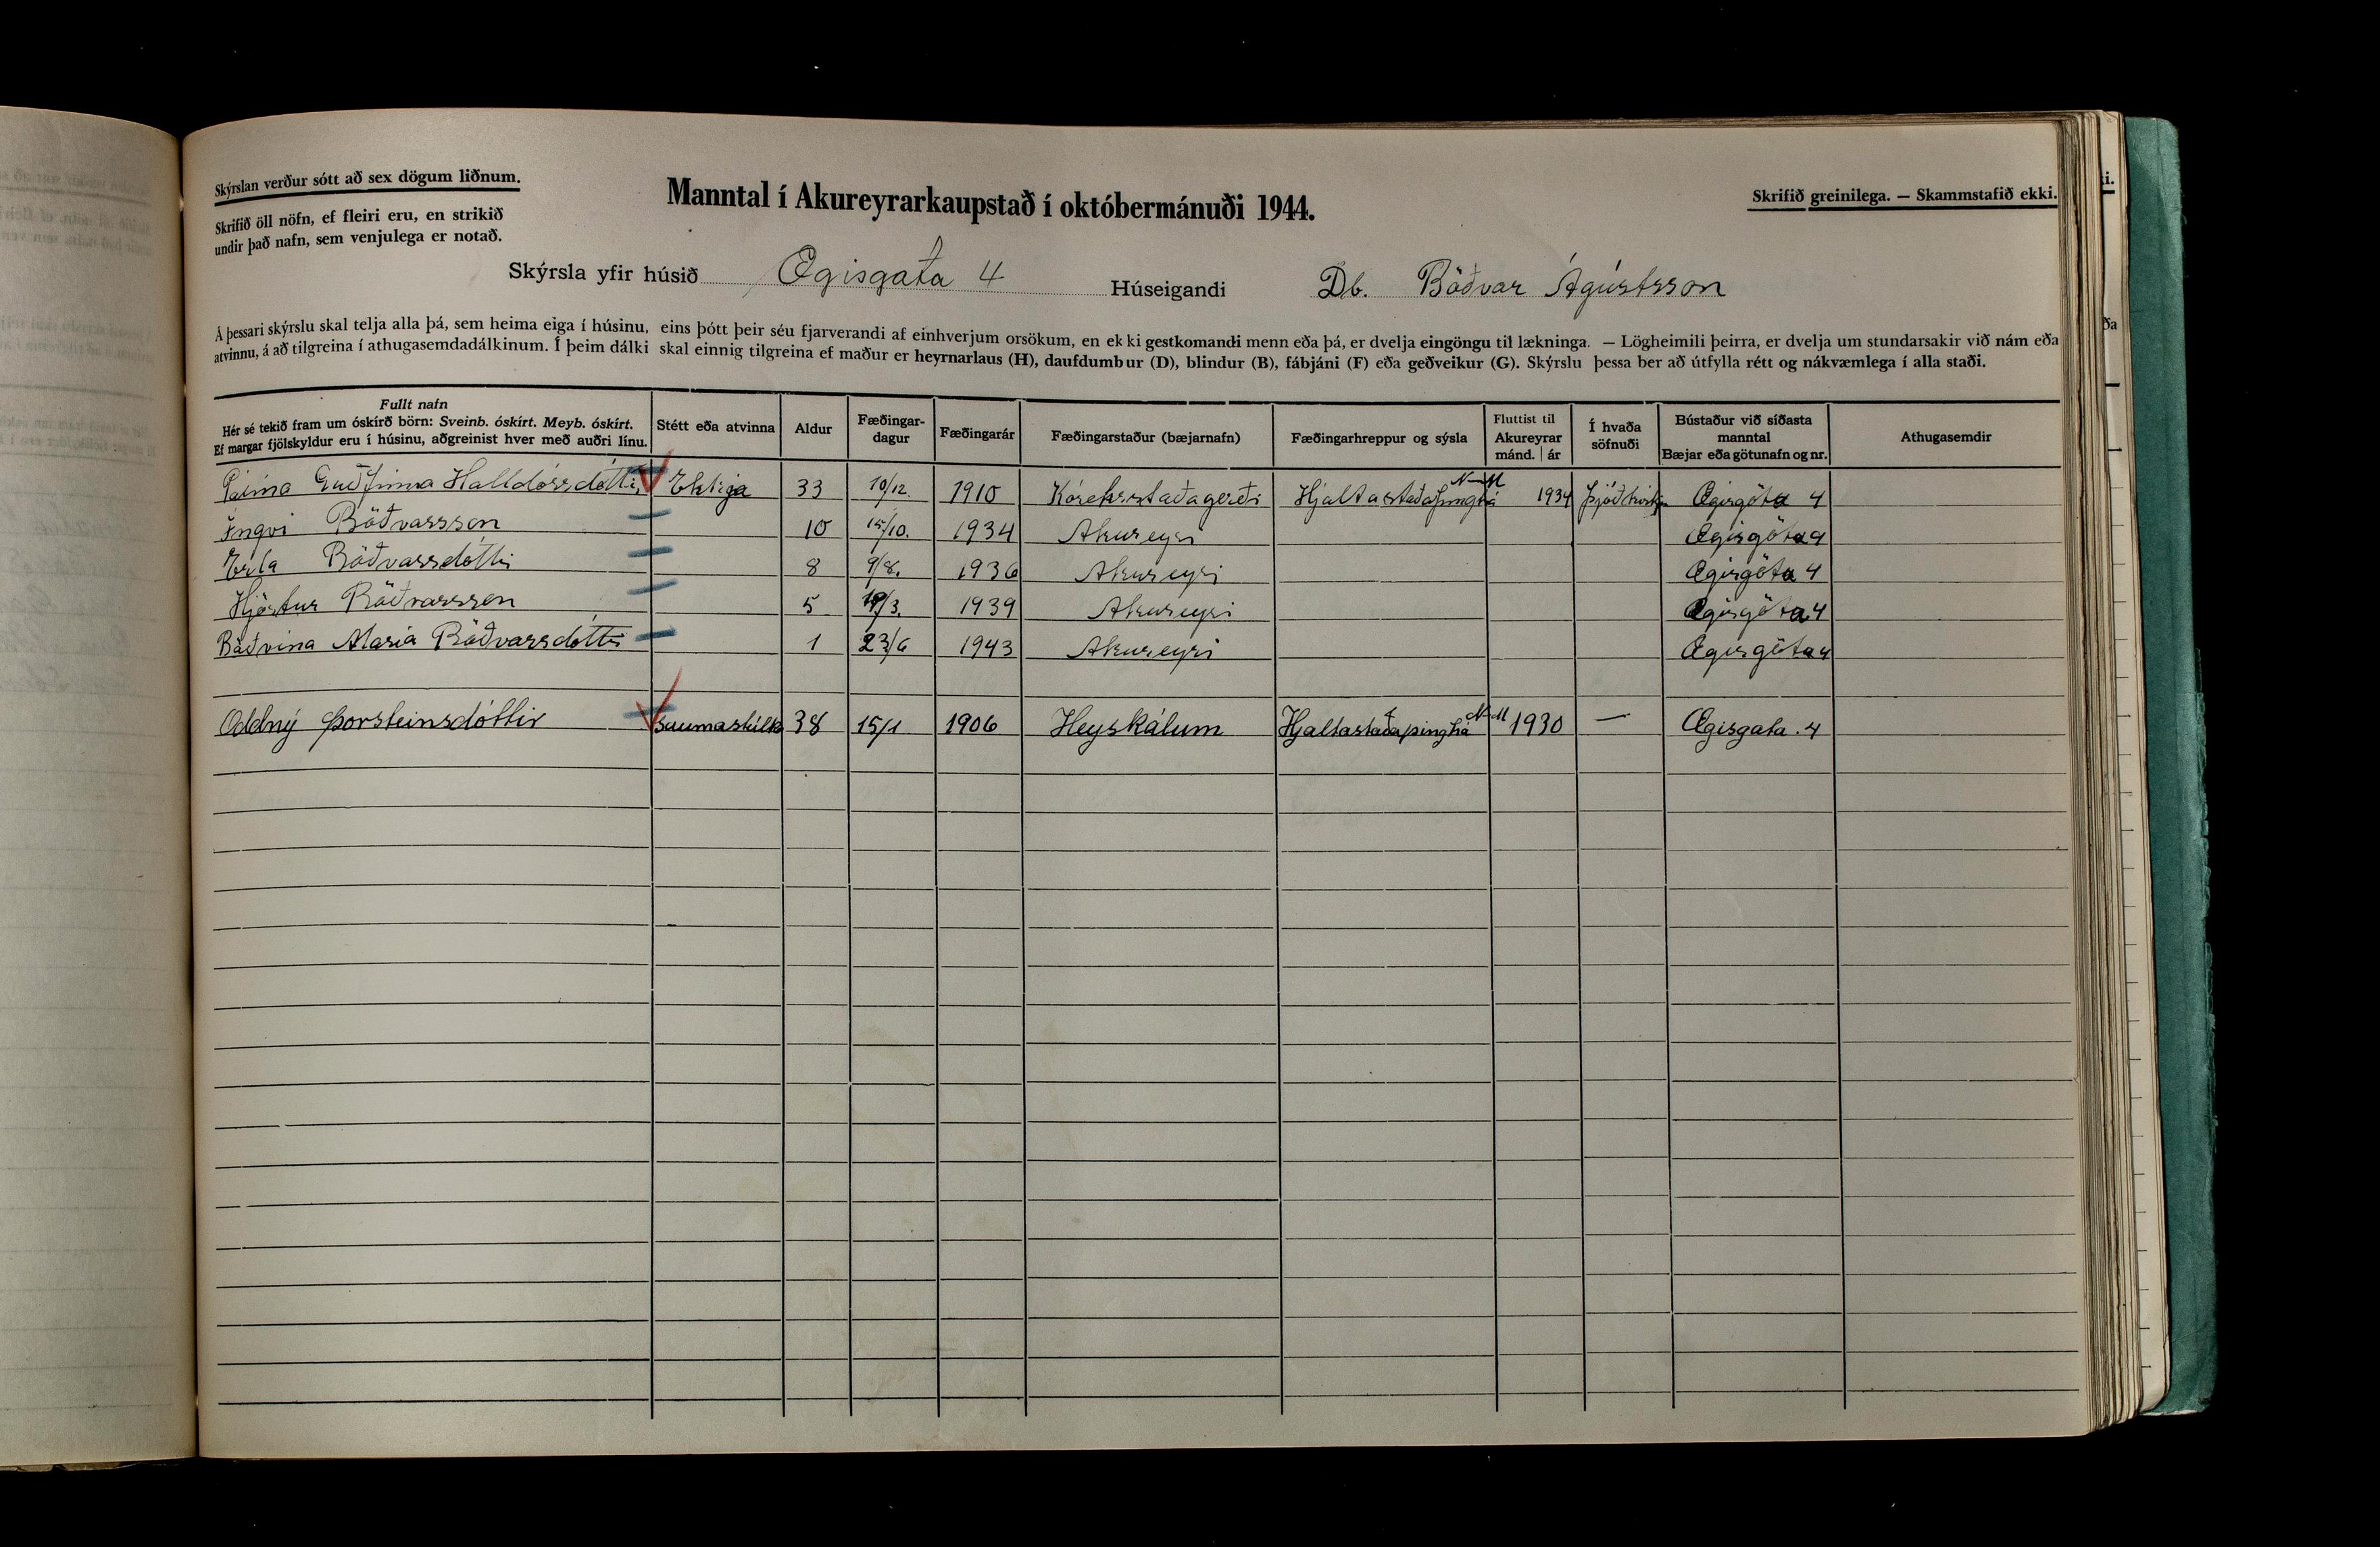 Skýrslan verður sótt að sex dögum liðnum.
Skrifið öll nöfn, ef fleiri eru, en strikið
undir það nafn, sem venjulega er notað.
Manntal í Akureyrarkaupstað í októbermánuði 1944.
Skrifið greinilega. — Skammstafið ekki.
Skýrsla yfir húsið Ægisgata 4 Húseigandi Db. Böðvar Ágústsson
Á þessari skýrslu skal telja alla þá, sem heima eiga í húsinu, eins þótt þeir séu fjarverandi af einhverjum orsökum, en ekki gestkomandi menn eða þá, er dvelja eingöngu til lækninga. — Lögheimili þeirra, er dvelja um stundarsakir við nám eða
atvinnu, á að tilgreina í athugasemdadálkinum. Í þeim dálki skal einnig tilgreina ef maður er heyrnarlaus (H), daufdumbur (D), blindur (B), fábjáni (F) eða geðveikur (G). Skýrslu þessa ber að útfylla rétt og nákvæmlega í alla staði.
Fullt nafn
Hér sé tekið fram um óskírð börn: Sveinb. óskírt. Meyb. óskírt.
Ef margar fjölskyldur eru í húsinu, aðgreinist hver með auðri línu.
Stétt eða atvinna
Aldur
Fæðingar-
dagur
Fæðingarár
Fæðingarstaður (bæjarnafn)
Fæðingarhreppur og sýsla
Fluttist til
Akureyrar
mánd. | ár
Í hvaða
söfnuði
Bústaður við síðasta
manntal
Bæjar eða götunafn og nr.
Athugasemdir
Guðfinna Halldórsdóttir Ekkja 33 10/12. 1910 Kóreksstaðagerði Hjaltastaðaþinghá N-M 1934 Þjóðkirkju Ægisgöta 4
Yngvi Böðvarsson 10 15/10. 1934 Akureyri Ægisgöta 4
Erla Böðvarsdóttir 8 9/8. 1936 Akureyri Ægisgöta 4
Hjörtur Böðvarsson 5 /3. 1939 Akureyri Ægisgöta 4
Böðvina María Böðvarsdóttir 1 23/6 1943 Akureyri Ægisgöta 4
Oddný Þorsteinsdóttir Saumastúlka 38 15/1 1906 Heyskálum Hjaltastaðaþinghá N-M 1930 — Ægisgata. 4